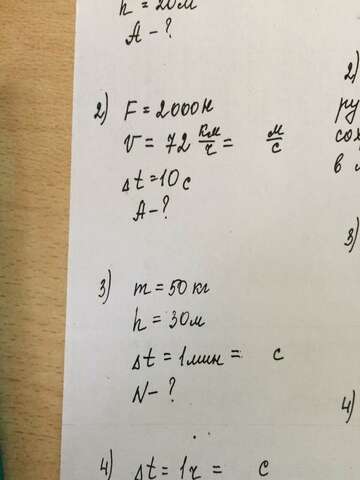 h = 20м
A - ?
2) F = 2000н
V = 72 км/ч = м/с
Δt = 10 с
A - ?
3) m = 50 кг
h = 30м
Δt = 1 мин = с
N - ?
4) Δt = 1ч = с
2)
ру
сох
в л
3)
4)